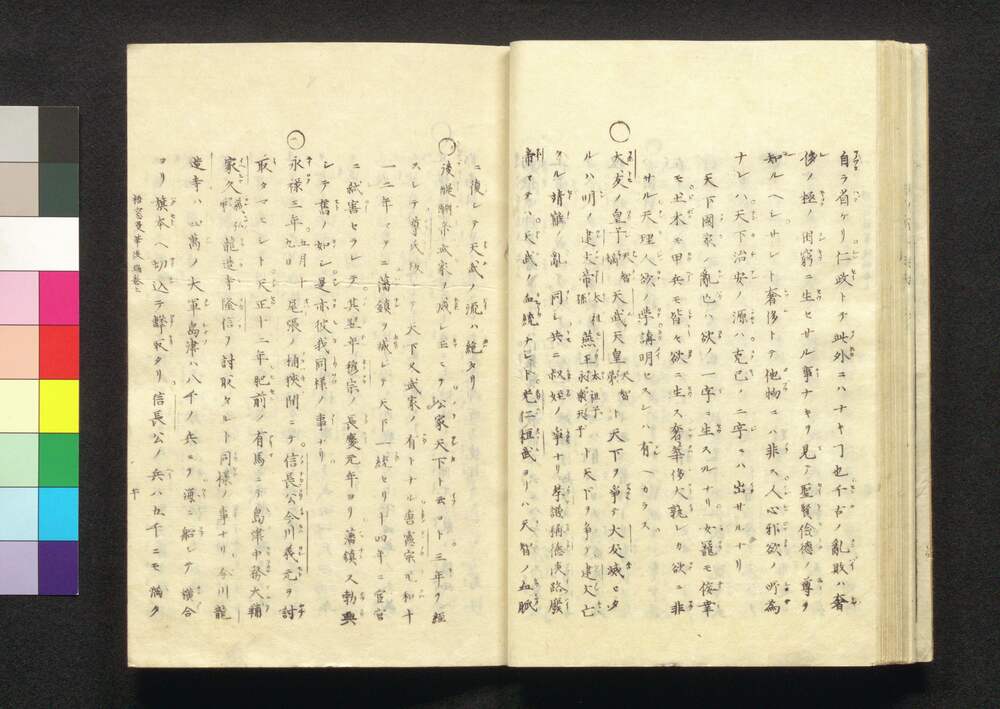 自ラ省ケリ仁政トテ此外ニハナキ丁也千古ノ亂敗ハ奢
侈ノ極ノ困窮ニ生セサル事ナキヲ見テ聖賢倹徳ノ尊ヲ
知ルヘシサレト奢侈トテ他物ニハ非ス人心邪欲ノ所為
ナレハ天下治安ノ源ハ克已ノ二字ニハ出サルナリ
天下國家ノ亂亡ハ欲ノ一字ニ生スルナリ女寵モ侫幸
モ土木モ甲兵モ皆欲ニ生ス奢華侈大孰レカ欲ニ非
サル天理人欲ノ学講明セスンハ有ヘカラス
大友ノ皇子天智嫡子天武天皇天智弟ト天下ヲ争テ大友滅セタ
ルハ明ノ建文帝太祖孫燕王太祖子永樂天子ト天下ヲ争テ建文亡
タル靖難ノ亂ト同シ共ニ叔姪ノ事ナリ
帝マテハ天武ノ血統ナレト光仁桓武ヨリハ天智ノ血脈
ニ復シテ天武ノ流ハ絶タリ
後醍醐帝武家ヲ滅シ玉ヒテ公家天下ト云フト三年ヲ経
スシテ尊氏叛シテ天下又武家ノ有トナル唐憲宗元和十
二年マテニ藩鎮ヲ滅シテ天下一統セリ十四年ニ宦官
ニ弑害セラレテ其翌年穆宗ノ長慶元年ヨリ藩鎮又勃興
シテ舊ノ如シ是亦彼我同様ノ事ナリ
永禄三年五月十九日尾張ノ桶狭間ニテ信長公今川義元ヲ討
取タマヒシト天正十二年肥前ノ有馬ニテ島津中務大輔
家久龍造寺隆信ヲ討取タルト同様ノ事ナリ今川龍
造寺ハ四萬ノ大軍島津ハ八千ノ兵ニテ薄ニ船シテ横合
ヨリ旗本ヘ切込テ群取タリ信長公ノ兵ハ五千ニモ満タ
梧窓漫筆後編巻上